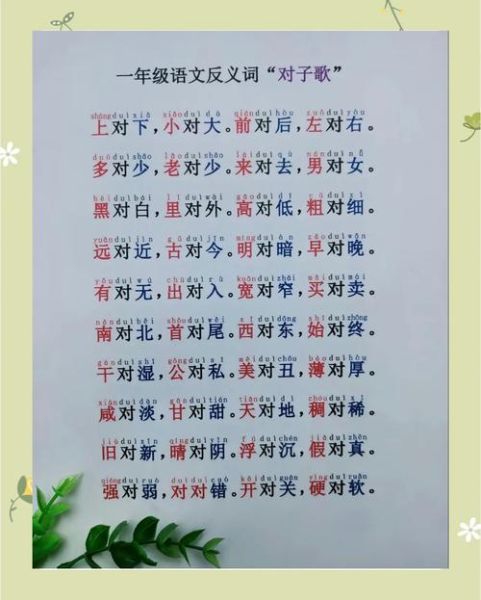 一年级语文反义词“对子歌”
shàng duì xià xiǎo duì dà qián duì hòu zuǒ duì yòu
上对下，小对大。前对后，左对右。
duō duì shǎo lǎo duì shào lái duì qù nán duì nǚ
多对少，老对少。来对去，男对女。
hēi duì bái lǐ duì wài gāo duì dī cū duì xì
黑对白，里对外。高对低，粗对细。
yuǎn duì jìn gǔ duì jīn míng duì àn zǎo duì wǎn
远对近，古对今。明对暗，早对晚。
yǒu duì wú chū duì rù kuān duì zhǎi mǎi duì mài
有对无，出对入。宽对窄，买对卖。
nán duì běi shǒu duì wěi xī duì dōng shǐ duì zhōng
南对北，首对尾。西对东，始对终。
gān duì shī gōng duì sī měi duì chǒu báo duì hòu
干对湿，公对私。美对丑，薄对厚。
咸对淡，甘对甜。天对地，稠对稀。
jiù duì xīn qíng duì yīn fú duì chén jiǎ duì zhēn
旧对新，晴对阴。浮对沉，假对真。
qiáng duì ruò duì duì cuò kāi duì guān yìng duì ruǎn
强对弱，对对错。开对关，硬对软。